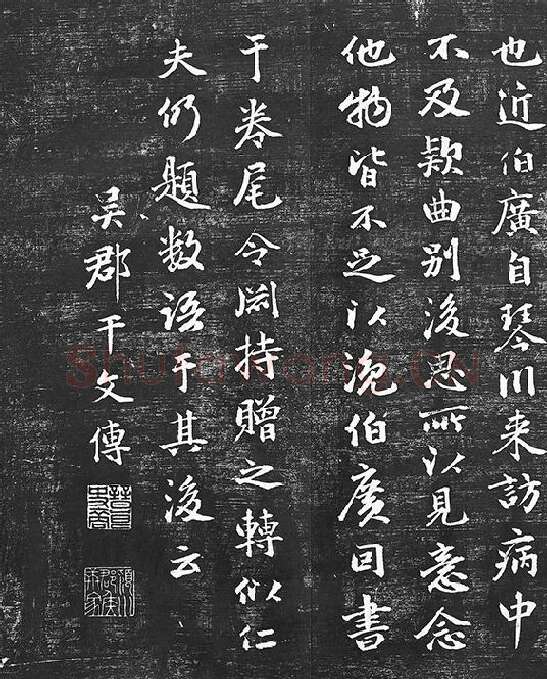 也近伯廣自琴川来訪病中
不及款曲别後思所以见意念
他物皆不足以浼伯廣因書
于卷尾令 持贈之轉似仁
夫仍題数语于其後云
吴郡干文傳